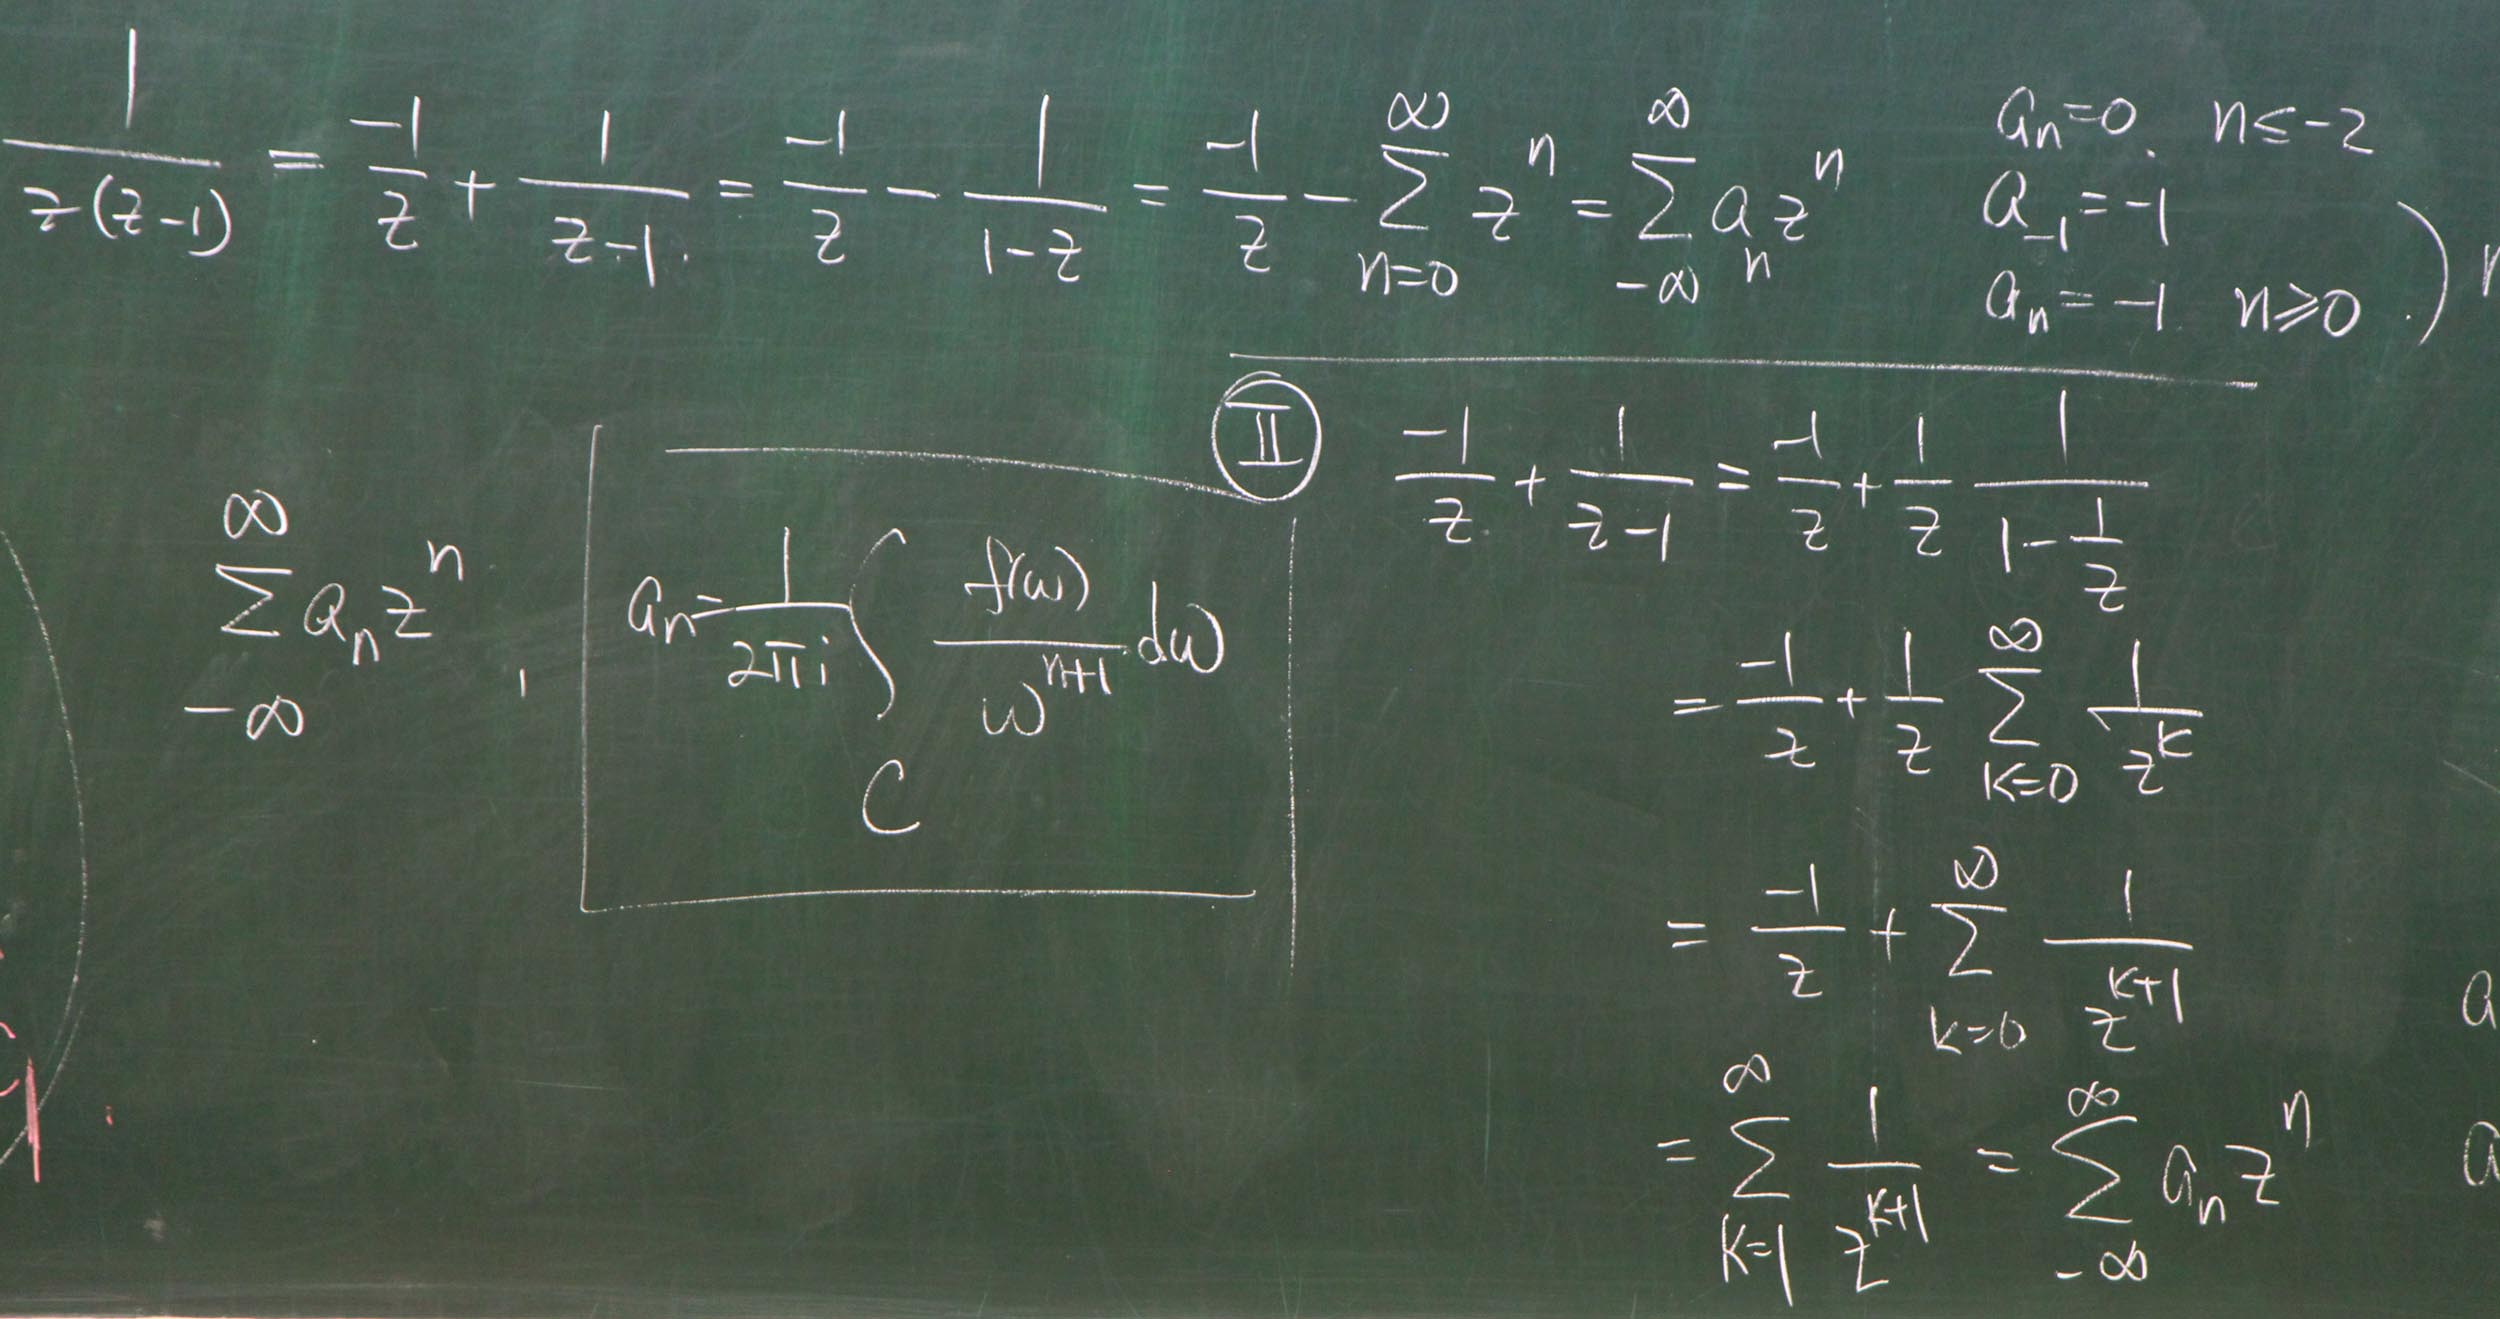 1/(z(z-1)) = -1/z + 1/(z-1) = -1/z - 1/(1-z) = -1/z - ∑_{n=0}^{∞} z^n = ∑_{-∞}^{∞} a_n z^n
a_n=0. n≤-2
a_{-1}=-1
a_n=-1 n≥0.)
∑_{-∞}^{∞} a_n z^n,
a_n = 1/(2πi) ∫_C f(ω)/ω^{n+1} dω
Ⅱ -1/z + 1/(z-1) = -1/z + 1/z 1/(1-1/z)
= -1/z + 1/z ∑_{k=0}^{∞} 1/z^k
= -1/z + ∑_{k=0}^{∞} 1/z^{k+1}
= ∑_{k=1}^{∞} 1/z^{k+1} = ∑_{-∞}^{∞} a_n z^n
a
a